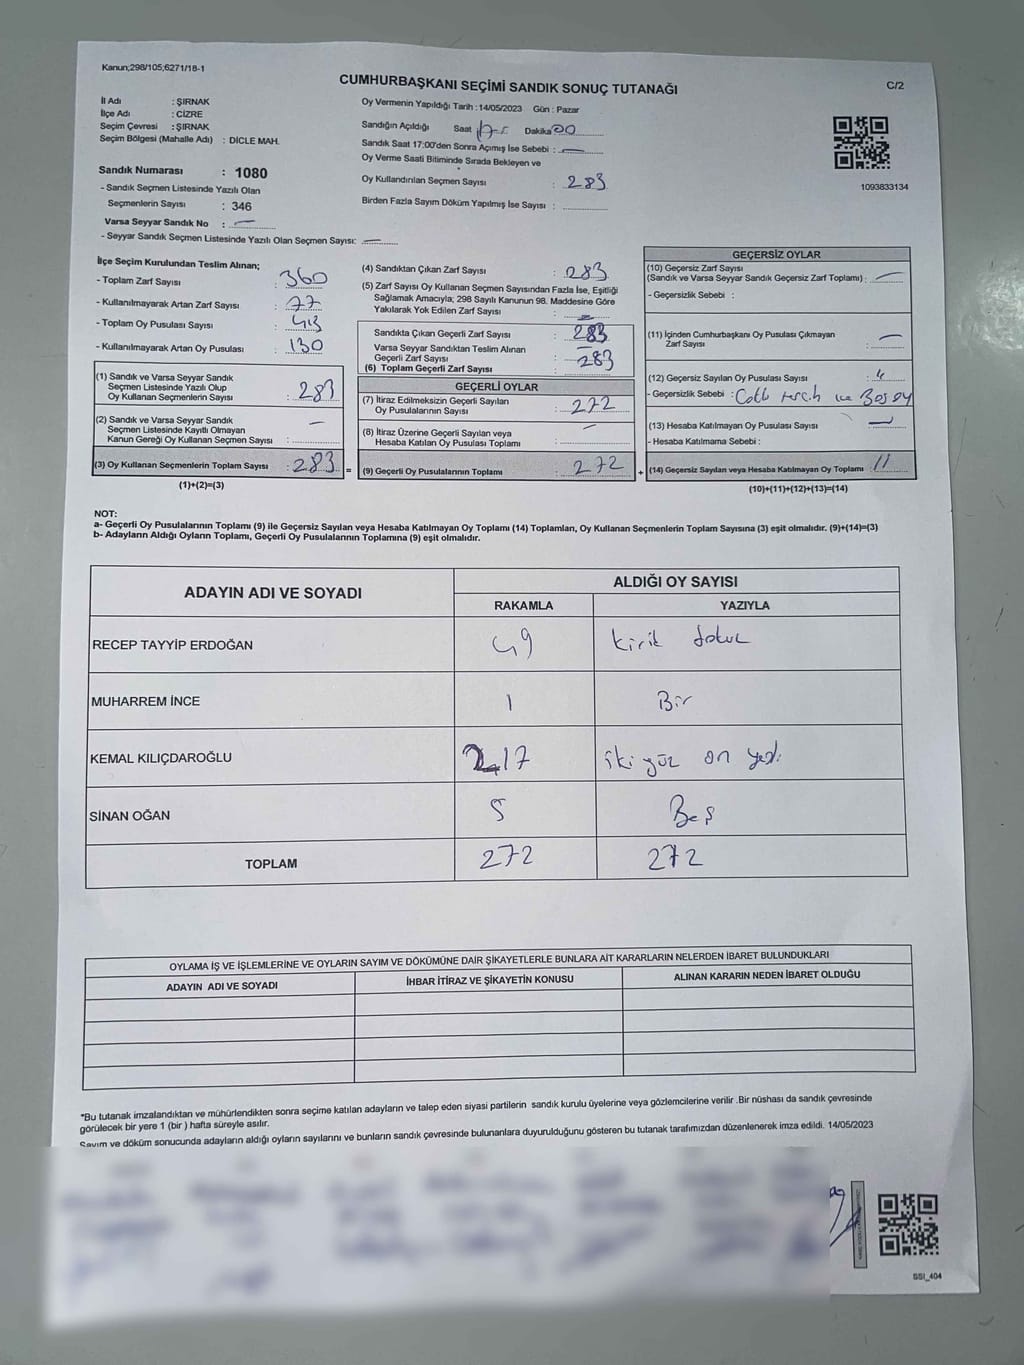 Kanun;298/105;6271/18-1
CUMHURBAŞKANI SEÇİMİ SANDIK SONUÇ TUTANAĞI
C/2
İl Adı : ŞIRNAK
İlçe Adı : CİZRE
Seçim Çevresi : ŞIRNAK
Seçim Bölgesi (Mahalle Adı) : DİCLE MAH.
Sandık Numarası : 1080
- Sandık Seçmen Listesinde Yazılı Olan
Seçmenlerin Sayısı : 346
Varsa Seyyar Sandık No : —
- Seyyar Sandık Seçmen Listesinde Yazılı Olan Seçmen Sayısı: —
Oy Vermenin Yapıldığı Tarih : 14/05/2023 Gün : Pazar
Sandığın Açıldığı Saat Dakika 00
Sandık Saat 17:00'den Sonra Açımış İse Sebebi : —
Oy Verme Saati Bitiminde Sırada Bekleyen ve
Oy Kullandırılan Seçmen Sayısı : 283
Birden Fazla Sayım Döküm Yapılmış İse Sayısı :
1093833134
İlçe Seçim Kurulundan Teslim Alınan;
- Toplam Zarf Sayısı : 360
- Kullanılmayarak Artan Zarf Sayısı : 77
- Toplam Oy Pusulası Sayısı : 413
- Kullanılmayarak Artan Oy Pusulası : 130
(1) Sandık ve Varsa Seyyar Sandık
Seçmen Listesinde Yazılı Olup
Oy Kullanan Seçmenlerin Sayısı : 283
(2) Sandık ve Varsa Seyyar Sandık
Seçmen Listesinde Kayıtlı Olmayan
Kanun Gereği Oy Kullanan Seçmen Sayısı : —
(3) Oy Kullanan Seçmenlerin Toplam Sayısı : 283 =
(1)+(2)=(3)
(4) Sandıktan Çıkan Zarf Sayısı : 283
(5) Zarf Sayısı Oy Kullanan Seçmen Sayısından Fazla İse, Eşitliği
Sağlamak Amacıyla; 298 Sayılı Kanunun 98. Maddesine Göre
Yakılarak Yok Edilen Zarf Sayısı : —
Sandıkta Çıkan Geçerli Zarf Sayısı : 283
Varsa Seyyar Sandıktan Teslim Alınan
Geçerli Zarf Sayısı : —
(6) Toplam Geçerli Zarf Sayısı : 283
GEÇERLİ OYLAR
(7) İtiraz Edilmeksizin Geçerli Sayılan
Oy Pusulalarının Sayısı : 272
(8) İtiraz Üzerine Geçerli Sayılan veya
Hesaba Katılan Oy Pusulası Toplamı : —
(9) Geçerli Oy Pusulalarının Toplamı : 272 +
GEÇERSİZ OYLAR
(10) Geçersiz Zarf Sayısı
(Sandık ve Varsa Seyyar Sandık Geçersiz Zarf Toplamı) : —
- Geçersizlik Sebebi :
(11) İçinden Cumhurbaşkanı Oy Pusulası Çıkmayan
Zarf Sayısı : —
(12) Geçersiz Sayılan Oy Pusulası Sayısı :
- Geçersizlik Sebebi : tercih ve Boş oy
(13) Hesaba Katılmayan Oy Pusulası Sayısı : —
- Hesaba Katılmama Sebebi :
(14) Geçersiz Sayılan veya Hesaba Katılmayan Oy Toplamı : 11
(10)+(11)+(12)+(13)=(14)
NOT:
a- Geçerli Oy Pusulalarının Toplamı (9) ile Geçersiz Sayılan veya Hesaba Katılmayan Oy Toplamı (14) Toplamları, Oy Kullanan Seçmenlerin Toplam Sayısına (3) eşit olmalıdır. (9)+(14)=(3)
b- Adayların Aldığı Oyların Toplamı, Geçerli Oy Pusulalarının Toplamına (9) eşit olmalıdır.
ADAYIN ADI VE SOYADI
ALDIĞI OY SAYISI
RAKAMLA YAZIYLA
RECEP TAYYİP ERDOĞAN 49 kırk dokuz
MUHARREM İNCE 1 Bir
KEMAL KILIÇDAROĞLU 217 iki yüz on yedi
SİNAN OĞAN 5 Beş
TOPLAM 272 272
OYLAMA İŞ VE İŞLEMLERİNE VE OYLARIN SAYIM VE DÖKÜMÜNE DAİR ŞİKAYETLERLE BUNLARA AİT KARARLARIN NELERDEN İBARET BULUNDUKLARI
ADAYIN ADI VE SOYADI İHBAR İTİRAZ VE ŞİKAYETİN KONUSU ALINAN KARARIN NEDEN İBARET OLDUĞU
*Bu tutanak imzalandıktan ve mühürlendikten sonra seçime katılan adayların ve talep eden siyasi partilerin sandık kurulu üyelerine veya gözlemcilerine verilir .Bir nüshası da sandık çevresinde
görülecek bir yere 1 (bir ) hafta süreyle asılır.
Sayım ve döküm sonucunda adayların aldığı oyların sayılarını ve bunların sandık çevresinde bulunanlara duyurulduğunu gösteren bu tutanak tarafımızdan düzenlenerek imza edildi. 14/05/2023
SSI_404